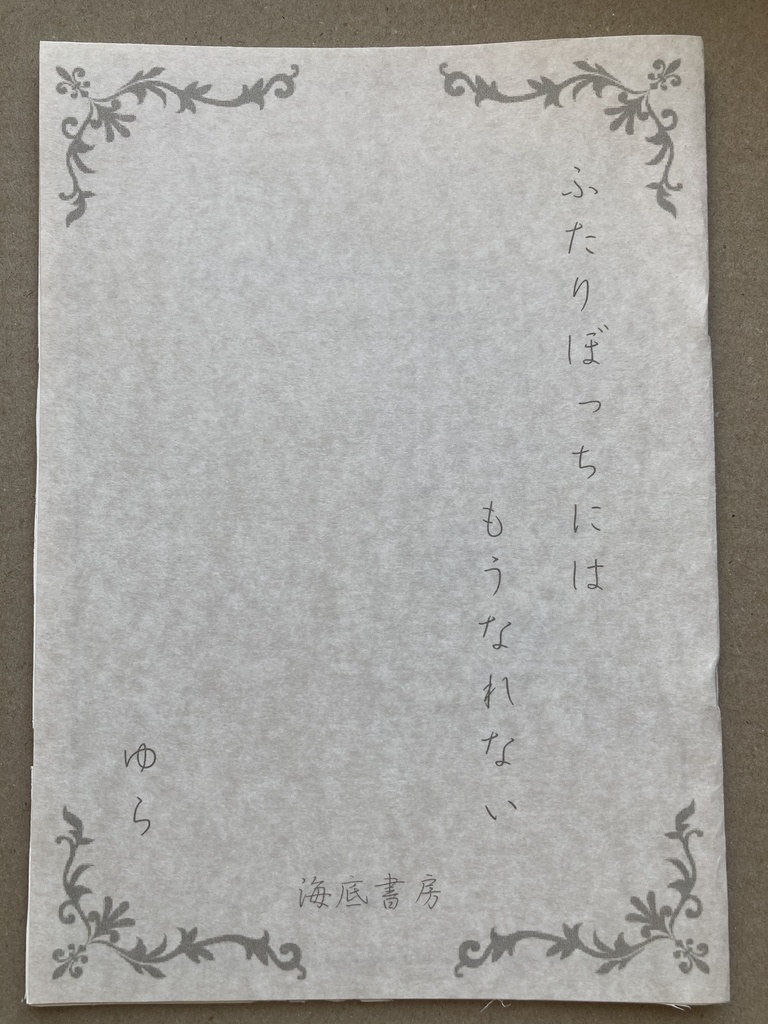 ふたりぼっちには
もうなれない
ゆら
海底書房